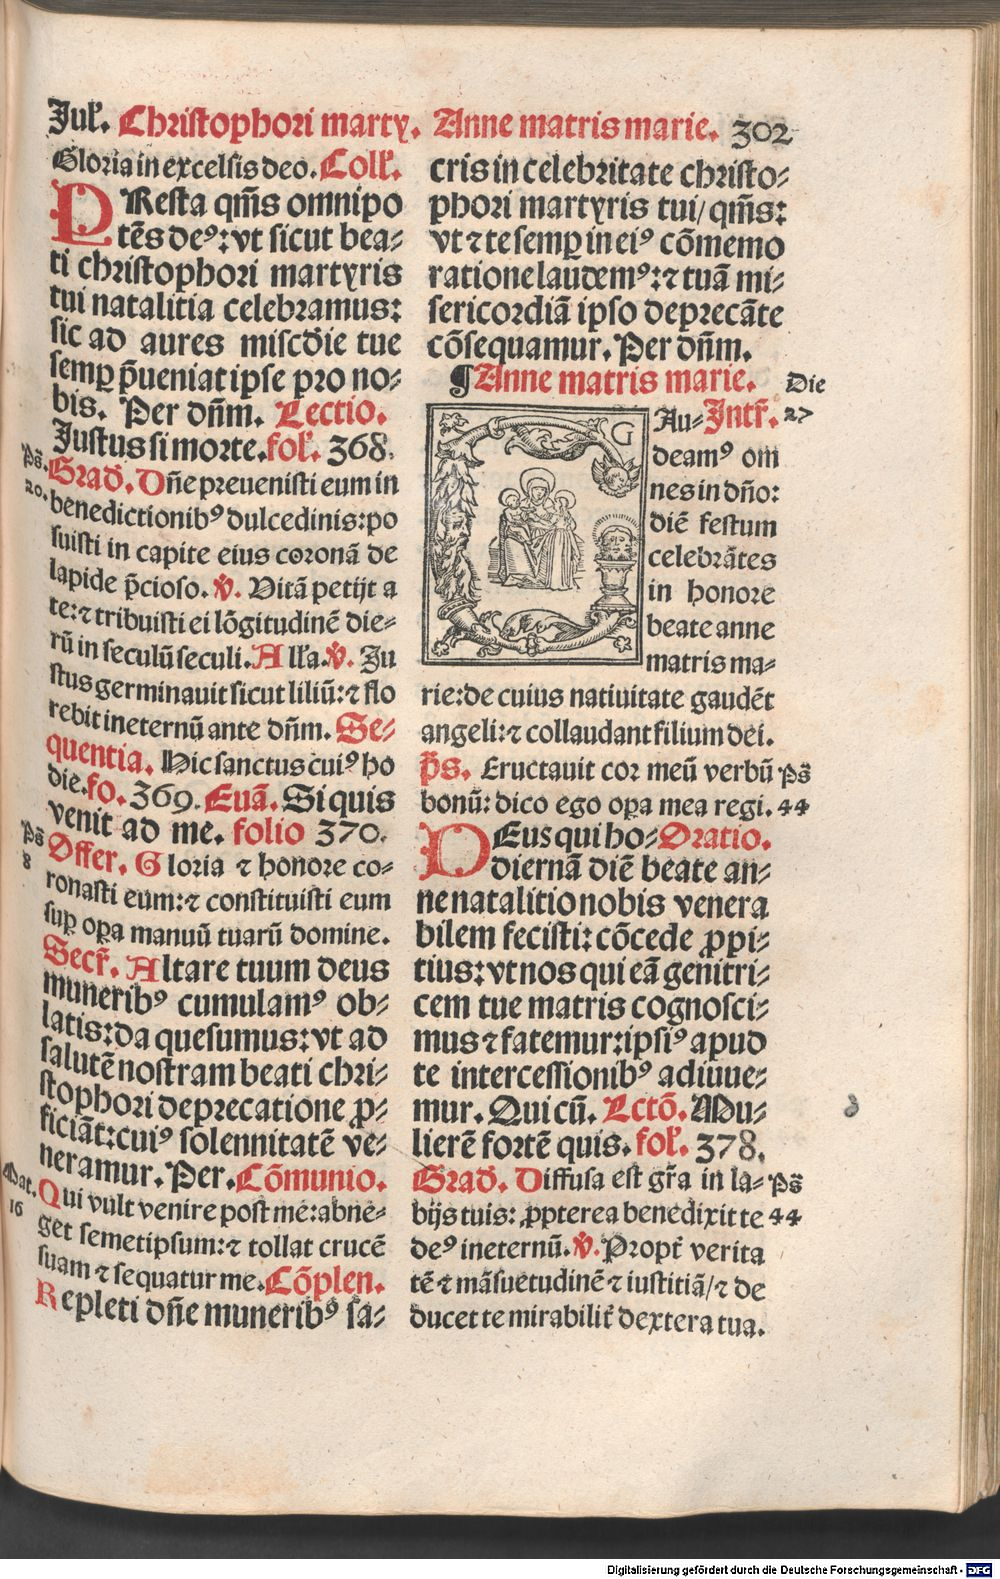 Jul᷎. Christophori marty. Anne matris marie. 302
Gloria in excelsis deo. Coll᷎.
PResta qm̄s omnipo
tēs deꝰ: vt sicut bea⸗
ti christophori martyris
tui natalitia celebramus:
sic ad aures miscd̄ie tue
semꝑ p̄ueniat ipse pro no⸗
bis. Per dn̄m. Lectio.
Justus si morte. fol᷎. 368.
Ps̄.
20.
Grad᷎. Dn̄e preuenisti eum in
benedictionibꝰ dulcedinis: po
suisti in capite eius coronā de
lapide p̄cioso. ℣. Vitā petijt a
te: ⁊ tribuisti ei lōgitudinē die⸗
rū in seculū seculi. All᷎a. ℣. Ju
stus germinauit sicut liliū: ⁊ flo
rebit in eternū ante dn̄m. Se⸗
quentia. Hic sanctus cuiꝰ ho
die. fo. 369. Euā. Si quis
venit ad me. folio 370.
Ps̄
8
Offer. Gloria ⁊ honore co⸗
ronasti eum: ⁊ constituisti eum
suꝑ oꝑa manuū tuarū domine.
Secr᷎. Altare tuum deus
muneribꝰ cumulamꝰ ob⸗
latis: da quesumus: vt ad
salutē nostram beati chri⸗
stophori deprecatione ꝓ⸗
ficiāt: cuiꝰ solennitatē ve⸗
neramur. Per. Cōmunio.
Mat.
16
Qui vult venire post me: abne⸗
get semetipsum: ⁊ tollat crucē
suam ⁊ sequatur me. Cōplen.
Repleti dn̄e muneribꝰ sa⸗
cris in celebritate christo⸗
phori martyris tui/ qm̄s:
vt ⁊ te semꝑ in eiꝰ cōmemo
ratione laudemꝰ: ⁊ tuā mi⸗
sericordiā ipso deprecāte
cōsequamur. Per dn̄m.
¶ Anne matris marie. Die
27
Au⸗ Intr᷎.
G
deamꝰ om
nes in dn̄o:
diē festum
celebrātes
in honore
beate anne
matris ma⸗
rie: de cuius natiuitate gaudēt
angeli: ⁊ collaudant filium dei.
p̄s. Eructauit cor meū verbū Ps̄
bonū: dico ego oꝑa mea regi. 44
DEus qui ho⸗ Oratio.
diernā diē beate an⸗
ne natalitio nobis venera
bilem fecisti: cōcede ꝓpi⸗
tius: vt nos qui eā genitri⸗
cem tue matris cognosci⸗
mus ⁊ fatemur: ipsiꝰ apud
te intercessionibꝰ adiuue⸗
mur. Qui cū. Lctō. Mu⸗
lierē fortē quis. fol᷎. 378.
Grad᷎. Diffusa est gr̄a in la⸗ Ps̄
bijs tuis: ꝓpterea benedixit te 44
deꝰ in eternū. ℣. Propt᷎ verita
tē ⁊ māsuetudinē ⁊ iustitiā/ ⁊ de
ducet te mirabilit᷎ dextera tua.
Digitalisierung gefördert durch die Deutsche Forschungsgemeinschaft - DFG